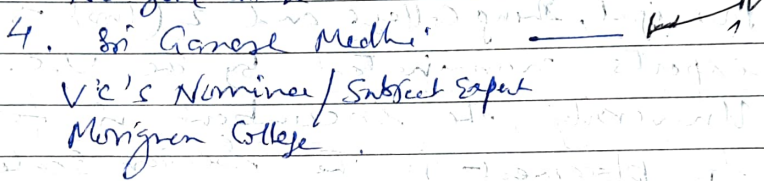 4. Sri Ganese Medhi
V.C's Nominee / Subject Expert
Morigaon College